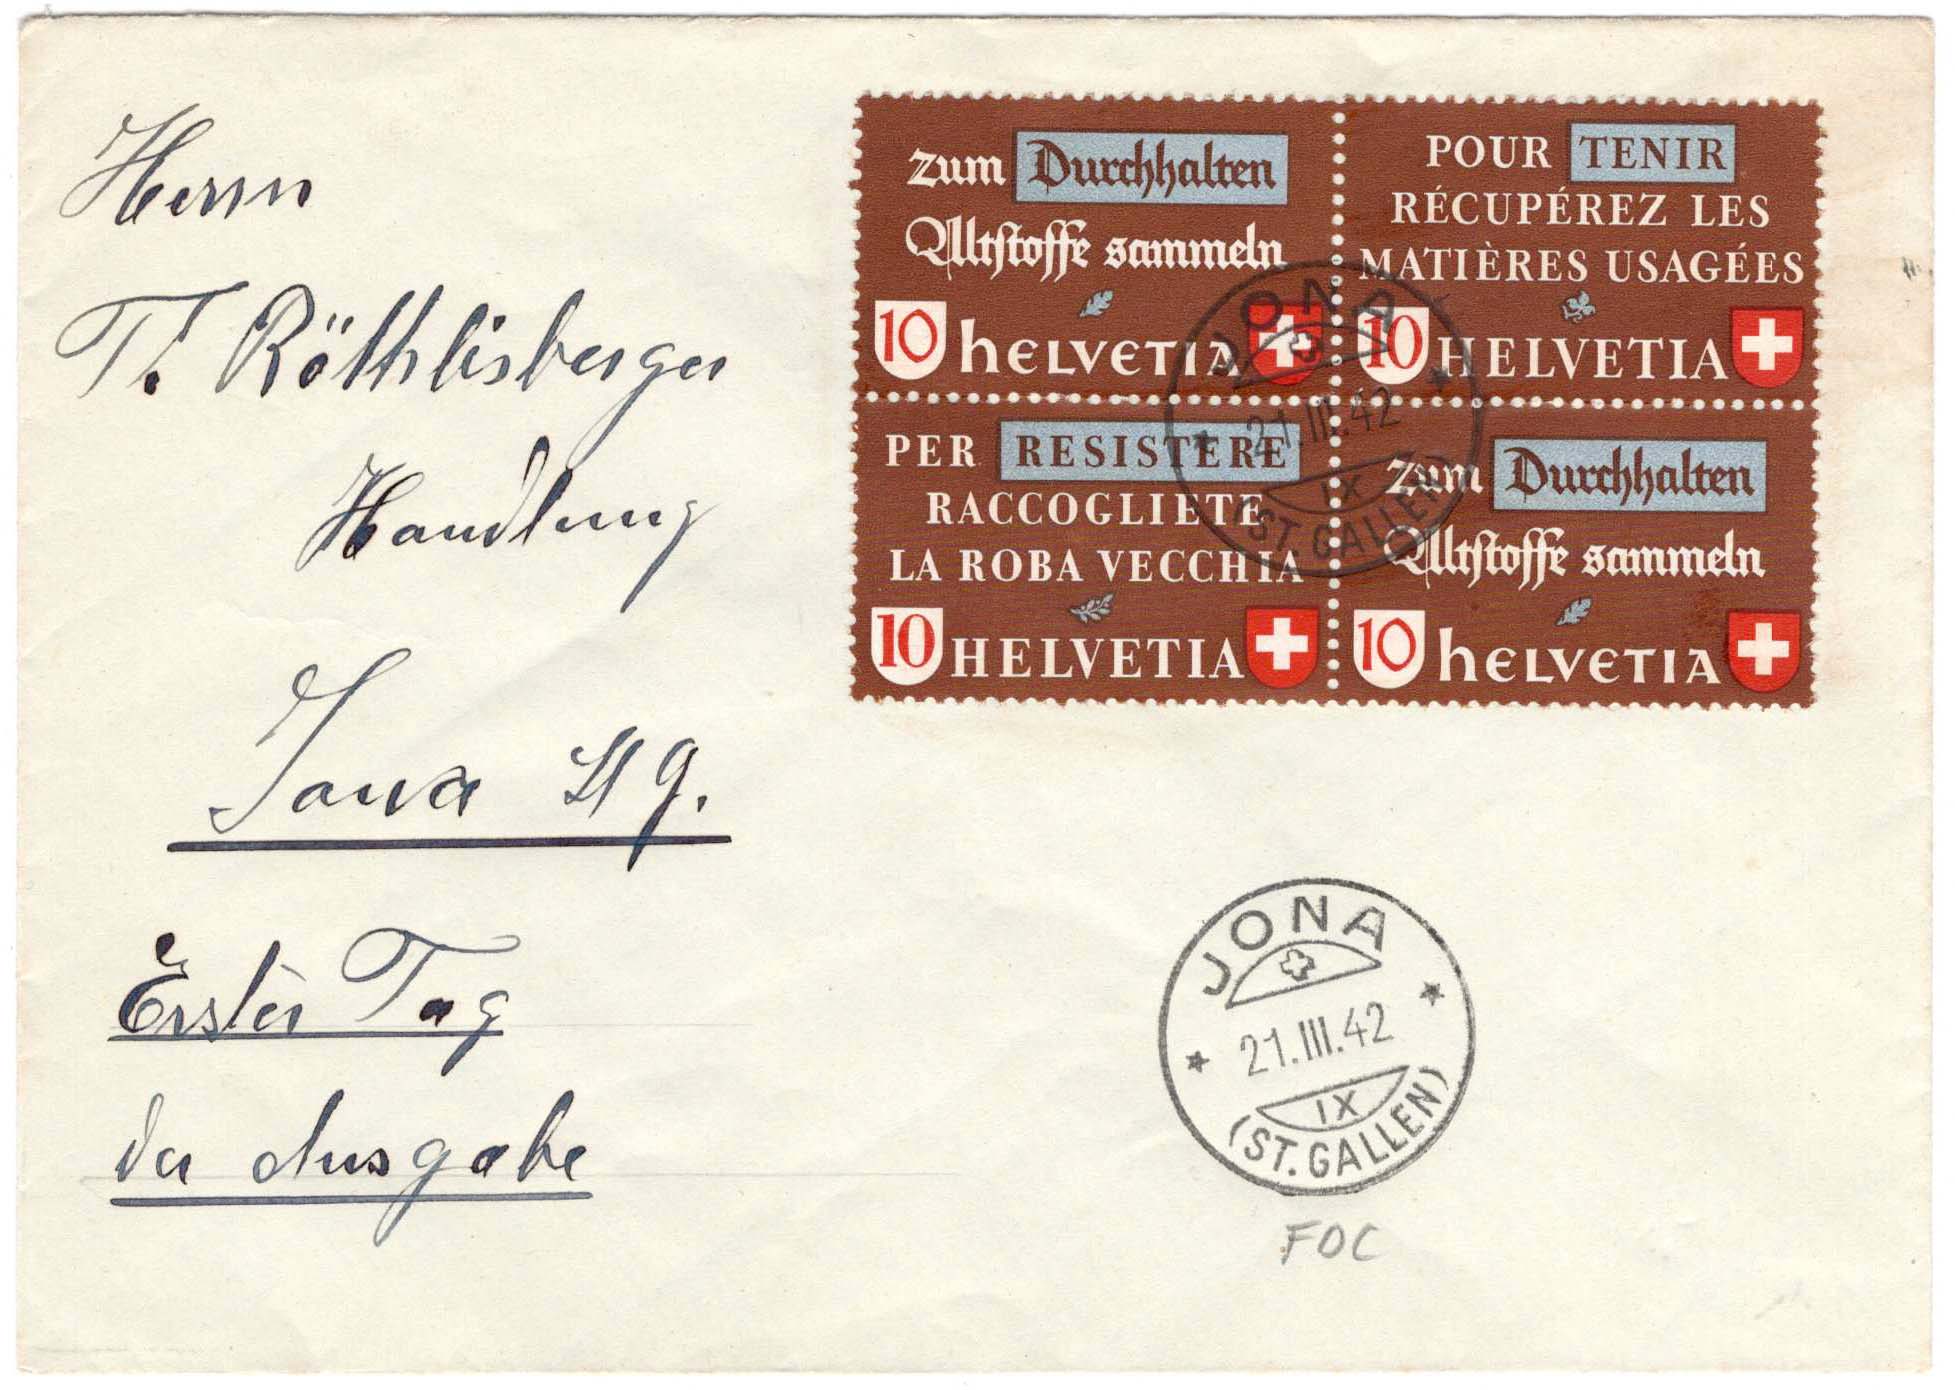 Herrn
Th. Röthlisberger
Handlung
Jona St. G.
Erster Tag
der Ausgabe
zum Durchhalten
Altstoffe sammeln
10 HELVETIA
POUR TENIR
RÉCUPÉREZ LES
MATIÈRES USAGÉES
10 HELVETIA
PER RESISTERE
RACCOGLIETE
LA ROBA VECCHIA
10 HELVETIA
zum Durchhalten
Altstoffe sammeln
10 HELVETIA
JONA
21.III.42
IX
(ST. GALLEN)
JONA
21.III.42
IX
(ST. GALLEN)
FDC